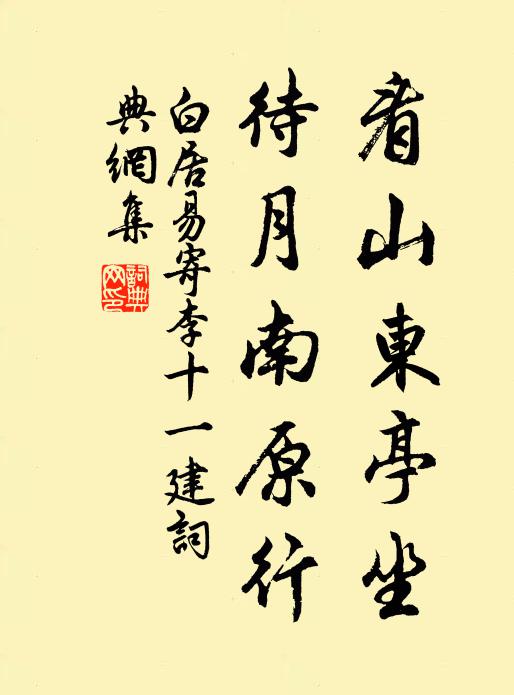 看山東亭坐
待月南原行
白居易寄李十一建詞
典網集
詞典
网印